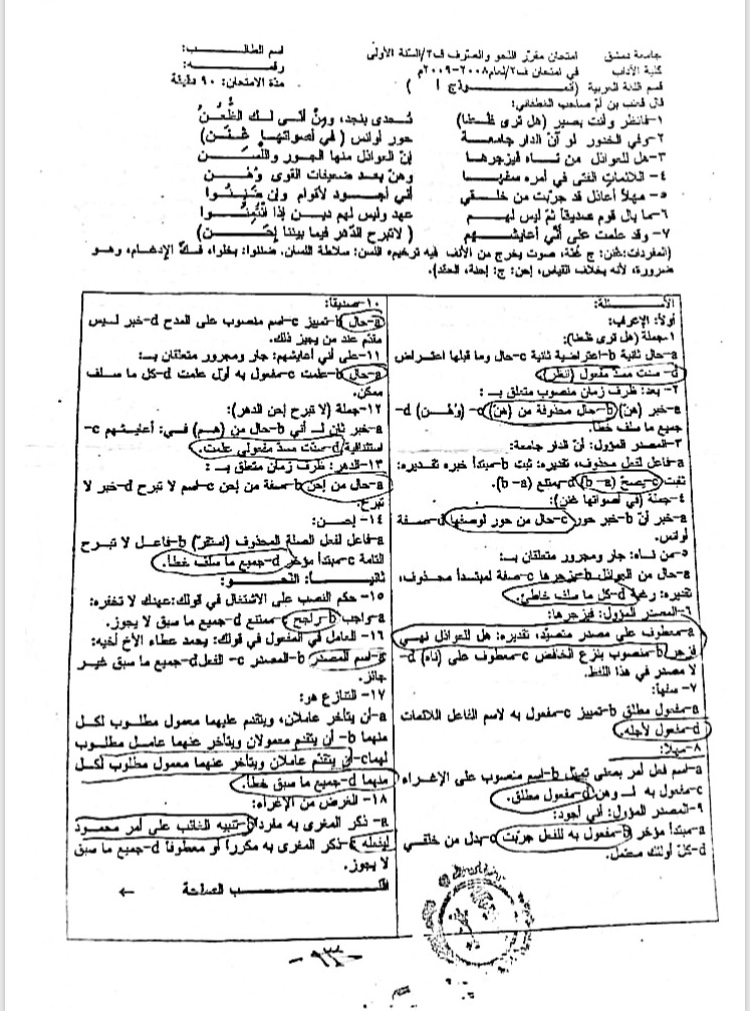 جامعة دمشق امتحان مقرّر النحو والصرف ف٢/السنة الأولى اسم الطالـــــــب:
كلية الآداب في امتحان ف٢/لعام ٢٠٠٨-٢٠٠٩م رقمـــــــه:
قسم اللغة العربية (نمـــــوذج أ ) مدة الامتحان: ٩٠ دقيقة
قال قعنب بن أم صاحب الغطفاني:
١-فانظر وأنت بصير (هل ترى ظعنا) تُحدى بنجد، ومنْ أنى لك الظُّعُنُ
٢-وفي الخدور لو أنّ الدار جامعــة حور أوانس ( في أصواتهـا غُنَـنُ)
٣-هل للعواذل من نـاه فيزجرها إنّ العواذل منها الجور واللَّسَـن
٤- اللائمات الفتى في أمره سفهـا وهنّ بعـد ضعيفات القوى وُهُـن
٥- مهلاً أعاذل قد جرّبت من خلقي أني أجـود لأقوام وإن ضَنِنـوا
٦-ما بال قوم صديقاً ثمّ ليس لهـم عهد وليس لهم ديـن إذا ائْتُمِنـوا
٧- وقد علمت على أنّي أعايشهـم ( لاتبرح الدّهر فيما بيننا إحَـن)
(المفردات:غُنن: ج غُنّة، صوت يخرج من الأنف فيه ترخيم، اللسن: سلاطة اللسان. ضننوا: بخلوا، فـكّ الإدغـام، وهـو
ضرورة، لأنه بخلاف القياس، إحن: ج: إحنة، الحقد).
الأسـئلة:
أولاً: الإعراب:
١-جملة (هل ترى ظعنا):
a-حال ثانية b-اعتراضية ثانية c-حال وما قبلها اعتراض
d- سدّت مسدّ مفعول (انظر).
٢- بعدُ: ظرف زمان منصوب متعلق بـ:
a-خبر (هنّ) b-حال محذوفة من (هنّ) c- (وُهُـن) d-
جميع ما سلف خطأ.
٣-المصدر المؤول: أنّ الدار جامعة:
a-فاعل لفعل محذوف، تقديره: ثبت b-مبتدأ خبره تقديره:
ثبت c-يصحّ (b-a) d-يمتنع (b-a).
٤-جملة (في أصواتها غنن):
a-خبر أنّ b-خبر حور c-حال من حور لوصفها d-صفة
أوانس.
٥-من ناه: جار ومجرور متعلقان بـ:
a-حال من العواذل b-يزجرها c-صفة لمبتـدأ محـذوف،
تقديره: رغبة d-كل ما سلف خاطئ.
٦-المصدر المؤول: فيزجرها:
a-معطوف على مصدر متصيّد، تقديره: هل للعواذل نهـي
فزجر b-منصوب بنزع الخافض c-معطوف على (ناه) d-
لا مصدر في هذا اللفظ.
٧- سفهاً:
a-مفعول مطلق b-تمييز c-مفعول به لاسم الفاعل اللائمات
d-مفعول لأجله.
٨-مهلاً:
a-اسم فعل أمر بمعنى تمهّل b-اسم منصوب على الإغـراء
c-مفعول به لـ وهن d-مفعول مطلق.
٩-المصدر المؤول: أني أجود:
a-مبتدأ مؤخر b-مفعول به للفعل جرّبت c-بدل من خلقي
d-كلّ أولئك محتمل.
١٠-صديقاً:
a-حال b-تمييز c-اسم منصوب على المدح d-خبر ليـس
مقدّم عند من يجيز ذلك.
١١-على أني أعايشهم: جار ومجرور متعلقان بـ:
a-حال b-علمت c-مفعول به أول علمت d-كل ما سـلف
ممكن.
١٢-جملة (لا تبرح إحن الدهر):
a-خبر ثان لـ أني b-حال من (هم) في: أعايشـهم c-
استئنافية d-سدّت مسدّ مفعولي علمت.
١٣-الدهر: ظرف زمان متعلق بـ :
a-حال من إحن b-صفة من إحن c-اسم لا تبرح d-خبر لا
تبرح.
١٤- إحـــن:
a-فاعل لفعل الصلة المحذوف (استقرّ) b-فاعـل لا تبـرح
التامة c-مبتدأ مؤخر d-جميع ما سلف خطأ.
ثانيـــــاً: النحـــــو:
١٥- حكم النصب على الاشتغال في قولك:عهدك لا تخفره:
a-واجب b-راجح c-ممتنع d-جميع ما سبق لا يجوز.
١٦-العامل في المفعول في قولك: يحمد عطاء الأخ أخيه:
a-اسم المصدر b-المصدر c- الفعل d-جميع ما سبق غيـر
جائز.
١٧- التنازع هو:
a-أن يتأخر عاملان، ويتقدم عليهما معمول مطلـوب لكـل
منهما b- أن يتقدم معمولان ويتأخر عنهما عامـل مطلـوب
لهما c-أن يتقدّم عاملان ويتأخر عنهما معمول مطلوب لكـل
منهما d-جميع ما سبق خطأ.
١٨- الغرض من الإغراء:
a- ذكر المغرى به مفرداً b-تنبيه الغائب على أمر محمـود
ليفعله c-ذكر المغرى به مكرراً أو معطوفاً d-جميع ما سبق
لا يجوز.
اقلـــــــب الصفحة ←
-٩٣-